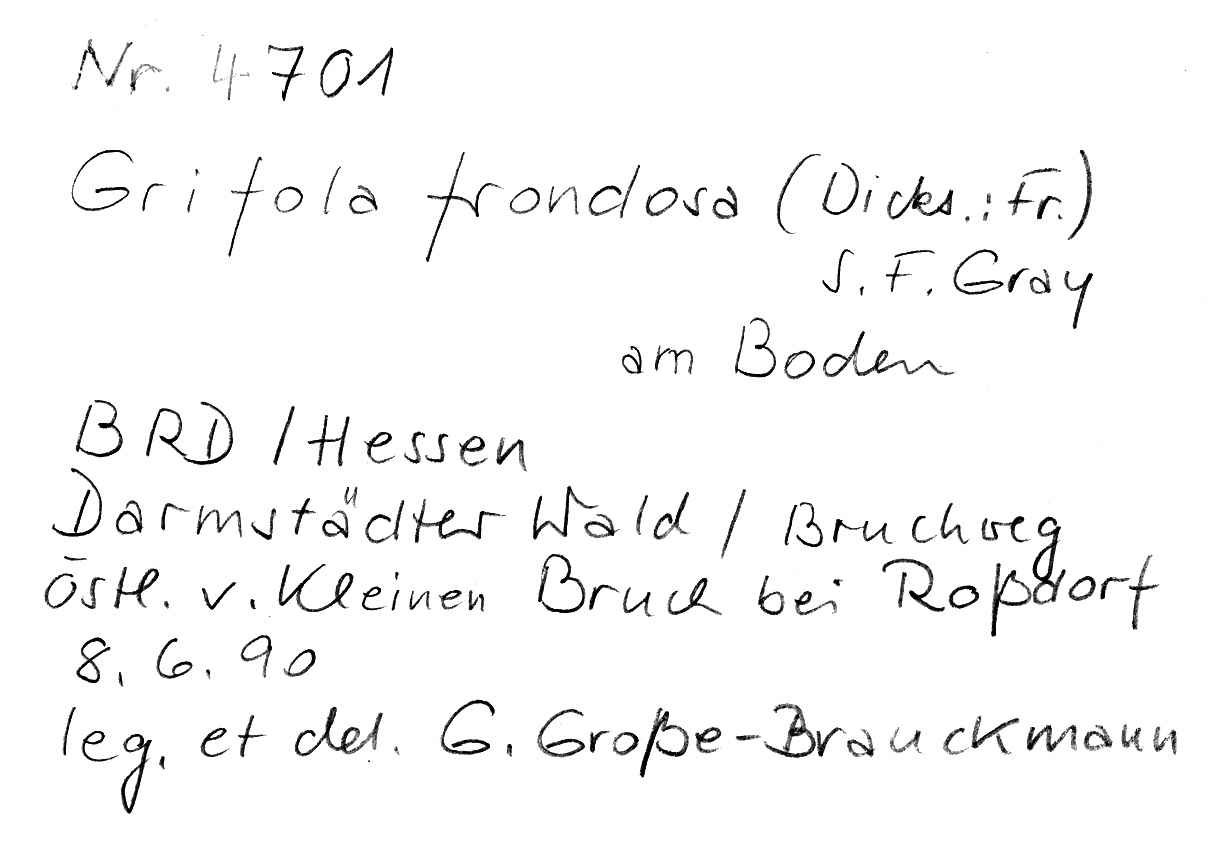 Nr. 4701
Grifola frondosa (Dicks.: Fr.)
S. F. Gray
am Boden
BRD / Hessen
Darmstädter Wald / Bruchweg
östl. v. Kleinen Bruch bei Roßdorf
8. 6. 90
leg. et det. G. Große-Brauckmann